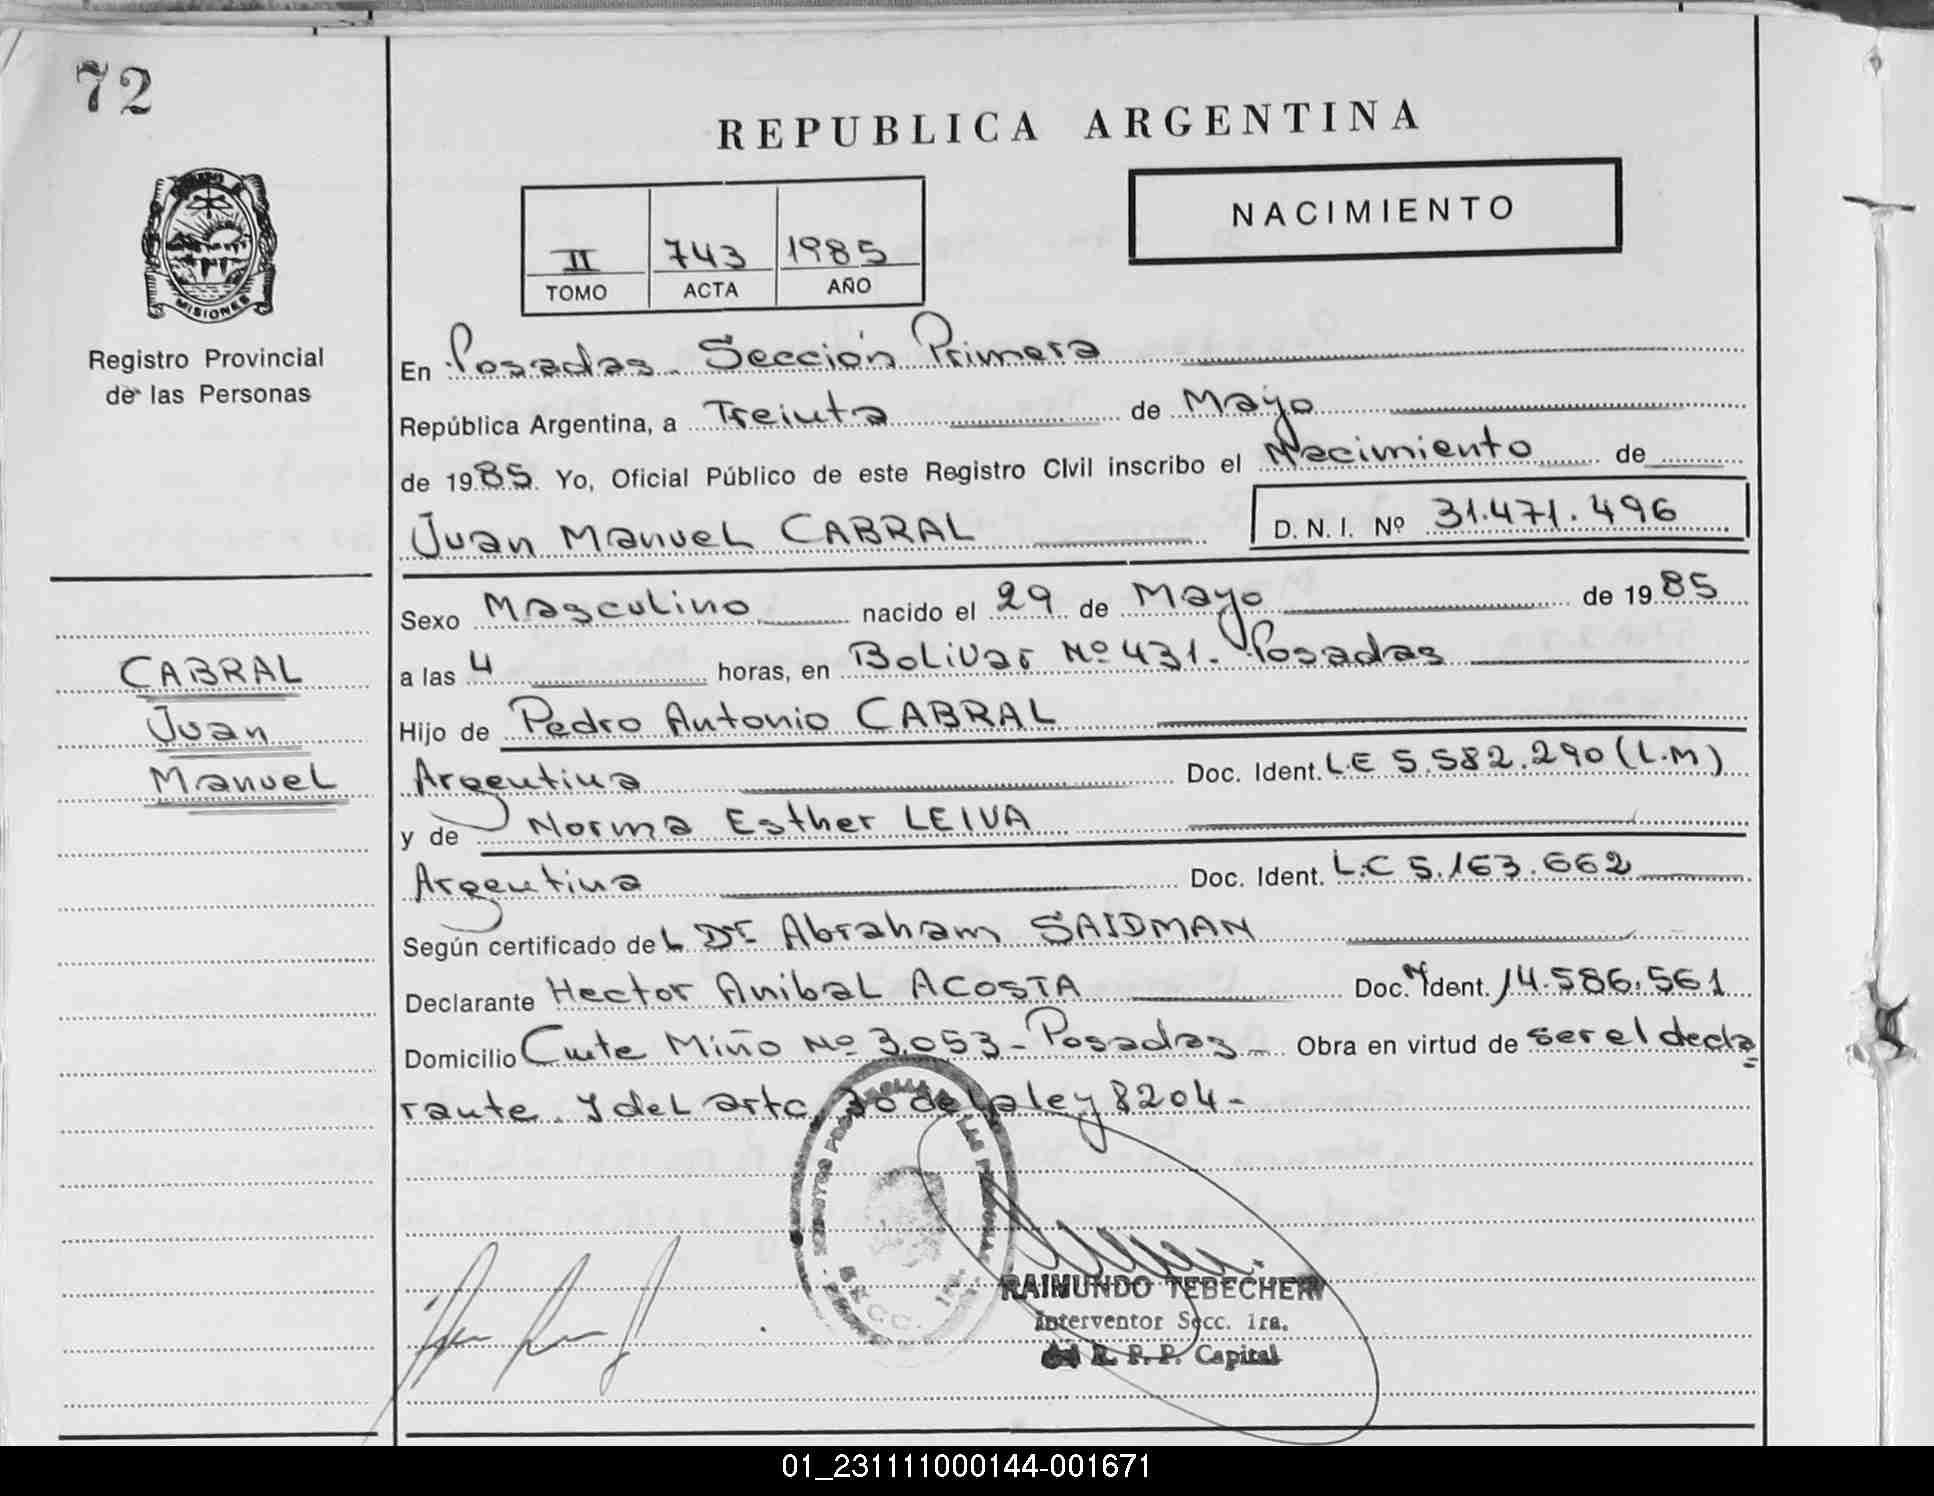 72
REPUBLICA ARGENTINA
NACIMIENTO
II 743 1985
TOMO ACTA AÑO
MISIONES
Registro Provincial
de las Personas
En Posadas. Sección Primera
República Argentina, a Treinta de Mayo
de 1985. Yo, Oficial Público de este Registro Civil inscribo el Nacimiento de
Juan Manuel CABRAL D. N. I. Nº 31.471.496
Sexo Masculino nacido el 29 de Mayo de 1985
a las 4 horas, en Bolivar Nº 431. Posadas
Hijo de Pedro Antonio CABRAL
Argentina Doc. Ident. L.E 5.582.290 (L.M)
y de Norma Esther LEIVA
Argentina Doc. Ident. L.C 5.163.662
Según certificado del Dr Abraham SAIDMAN
Declarante Hector Anibal ACOSTA Doc. N Ident. 14.586.561
Domicilio Cmte Miño Nº 3.053 - Posadas - Obra en virtud de ser el decla
rante. y del artc. 30 de la ley 8204-
CABRAL
Juan
Manuel
SECC. 1ra.
RAIMUNDO TEBECHERY
Interventor Secc. 1ra.
R. P. P. Capital
01_231111000144-001671